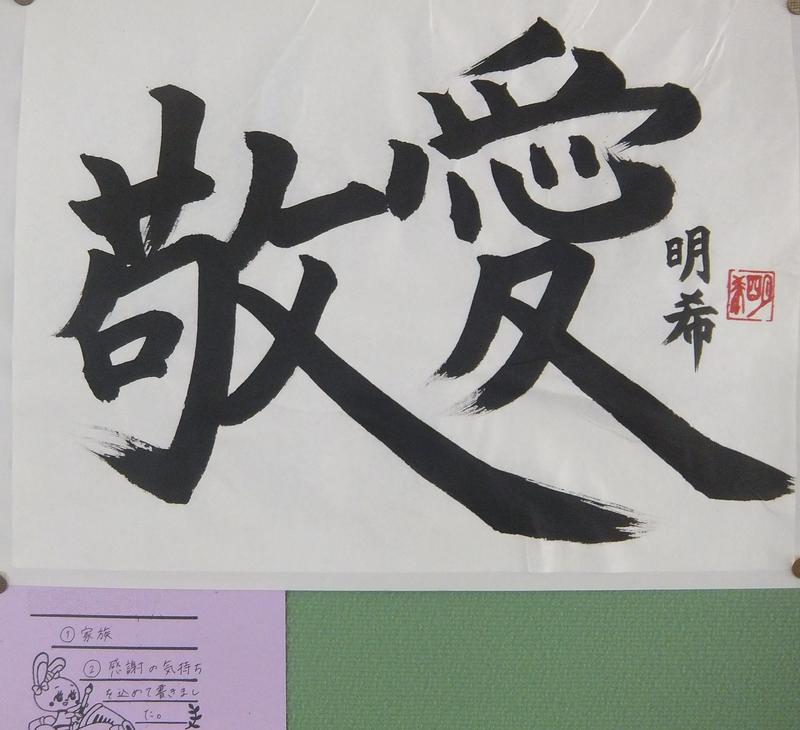 敬愛
明希
① 家族
② 感謝の気持ち
を込めて書きまし
た。